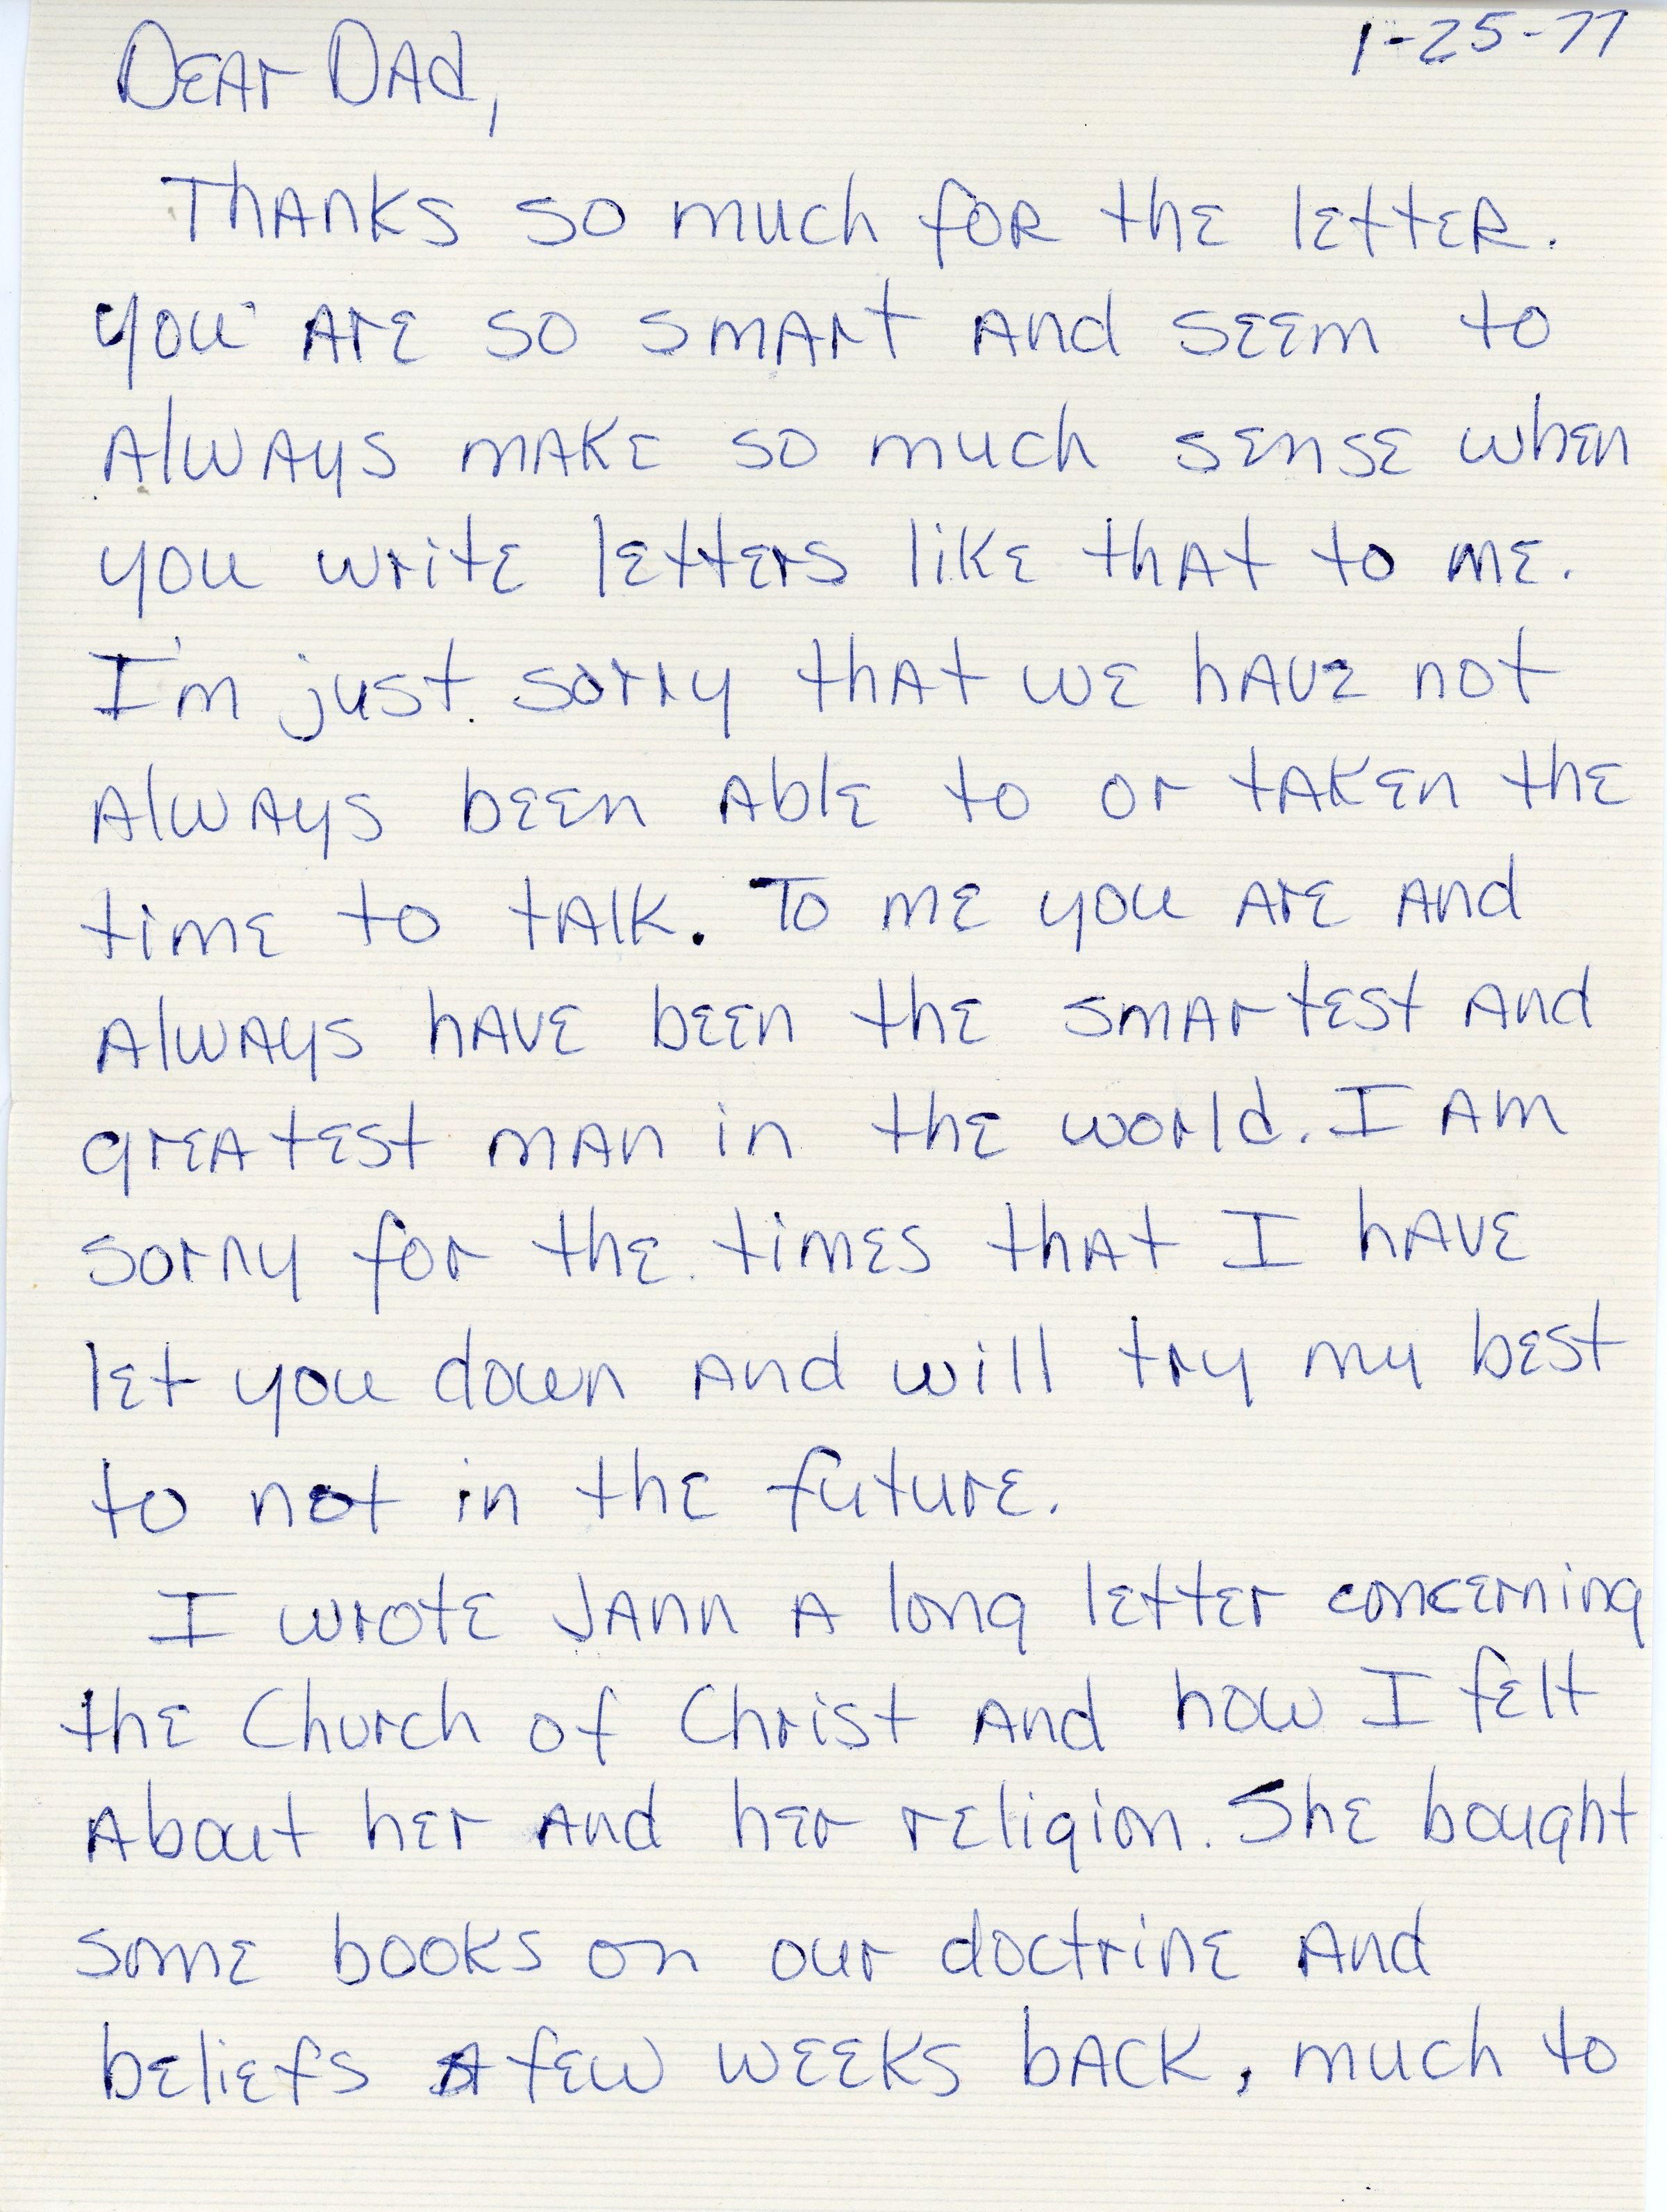 1-25-77
Dear Dad,
Thanks so much for the letter.
You are so smart and seem to
always make so much sense when
you write letters like that to me.
I'm just sorry that we have not
always been able to or taken the
time to talk. To me you are and
always have been the smartest and
greatest man in the world. I am
sorry for the times that I have
let you down and will try my best
to not in the future.
I wrote Jann a long letter concerning
the Church of Christ and how I felt
about her and her religion. She bought
some books on our doctrine and
beliefs a few weeks back, much to